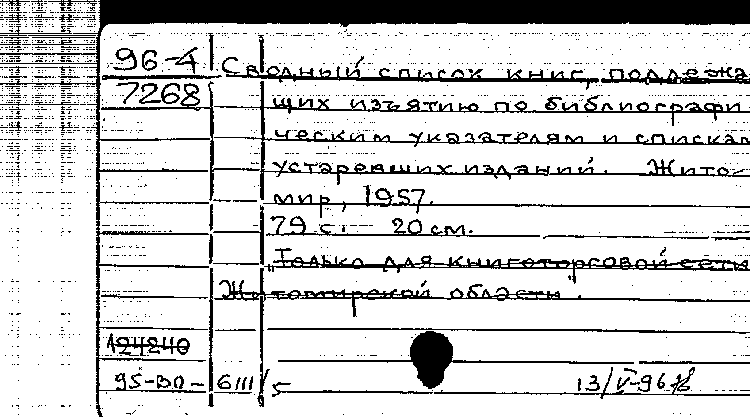 96-4 Сводный список книг, подлежа
7268 щих изъятию по библиографи
ческим указателям и спискам
устаревших изданий. Жито-
мир, 1957.
79 с. 20 см.
„Только для книготорговой сети
Житомирской области".
А24240
95-ВО-6111/5 13/V-96